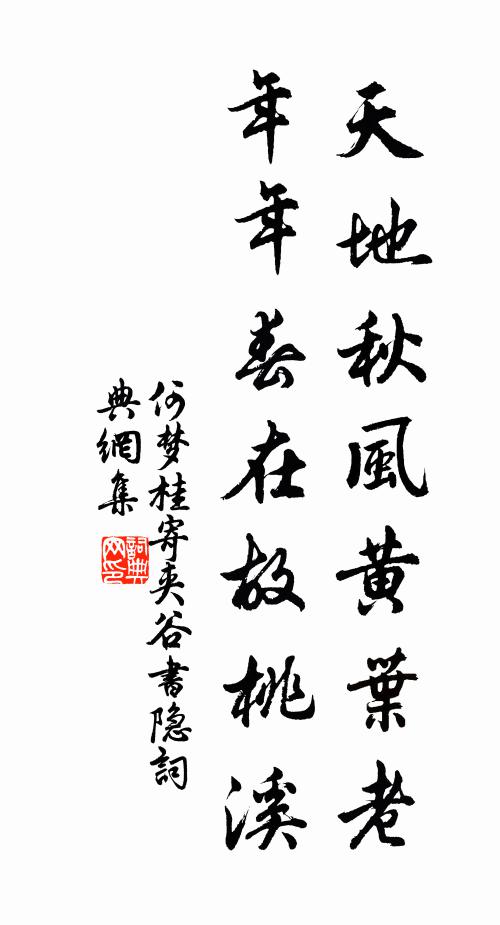 天地秋風黄葉老
年年春在故桃溪
何梦桂寄夹谷書隐詞
典網集
詞典
网印